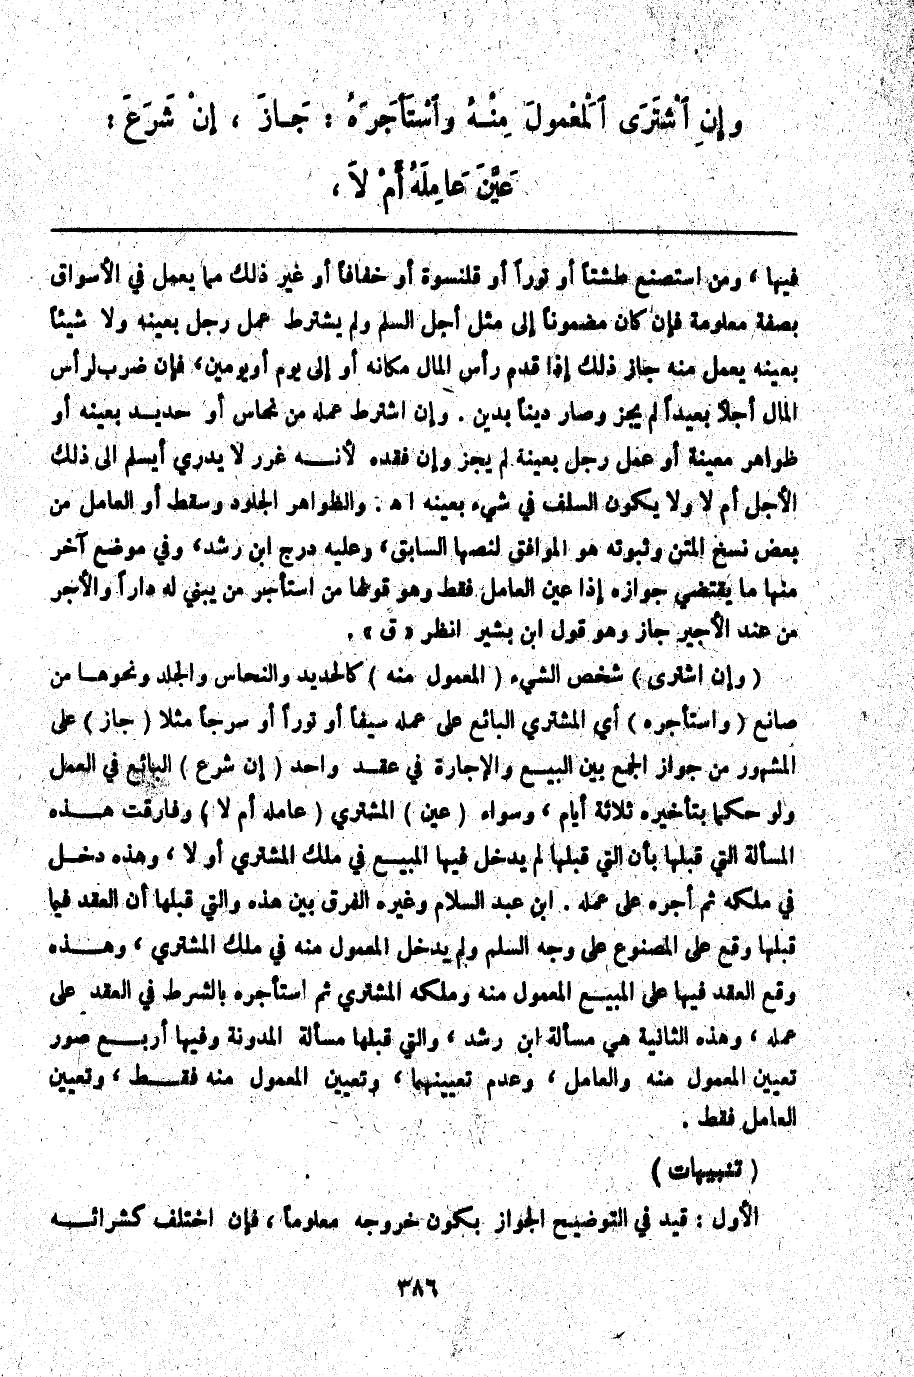 وإنِ ٱشْتَرَى ٱلْمَعْمولَ مِنْهُ وٱسْتَأجَرَهُ : جَازَ ، إنْ شَرَعَ :
عَيَّنَ عَامِلَهُ أَمْ لاَ ،
فيها ، ومن استصنع طشتاً أو توراً أو قلنسوة أو خفافاً أو غير ذلك مما يعمل في الأسواق
بصفة معلومة فإن كان مضموناً إلى مثل أجل السلم ولم يشترط عمل رجل بعينه ولا شيئاً
بعينه يعمل منه جاز ذلك إذا قدم رأس المال مكانه أو إلى يوم أو يومين ، فإن ضرب لرأس
المال أجلاً بعيداً لم يجز وصار ديناً بدين . وإن اشترط عمله من نحاس أو حديد بعينه أو
ظواهر معينة أو عمل رجل بعينة لم يجز وإن فقده لأنه غرر لا يدري أيسلم الى ذلك
الأجل أم لا ولا يكون السلف في شيء بعينه ا هـ . والظواهر الجلود وسقط أو العامل من
بعض نسخ المتن وثبوته هو الموافق لنصها السابق ، وعليه درج ابن رشد ، وفي موضع آخر
منها ما يقتضي جوازه إذا عين العامل فقط وهو قولها من استأجر من يبني له داراً والأجر
من عند الأجير جاز وهو قول ابن بشير انظر « ق » .
( وإن اشترى ) شخص الشيء ( المعمول منه ) كالحديد والنحاس والجلد ونحوها من
صانع ( واستأجره ) أي المشتري البائع على عمله سيفاً أو توراً أو سرجاً مثلا ( جاز ) على
المشهور من جواز الجمع بين البيع والإجارة في عقد واحد ( إن شرع ) البائع في العمل
ولو حكما بتأخيره ثلاثة أيام ، وسواء ( عين ) المشتري ( عامله أم لا ) وفارقت هذه
المسألة التي قبلها بأن التي قبلها لم يدخل فيها المبيع في ملك المشتري أو لا ، وهذه دخل
في ملكه ثم أجره على عمله . ابن عبد السلام وغيره الفرق بين هذه والتي قبلها أن العقد فيما
قبلها وقع على المصنوع على وجه السلم ولم يدخل المعمول منه في ملك المشتري ، وهذه
وقع العقد فيها على المبيع المعمول منه وملكه المشتري ثم استأجره بالشرط في العقد على
عمله ، وهذه الثانية هي مسألة ابن رشد ، والتي قبلها مسألة المدونة وفيها أربع صور
تعيين المعمول منه والعامل ، وعدم تعيينهما ، وتعيين المعمول منه فقط ، وتعيين
العامل فقط .
( تنبيهات )
الأول : قيد في التوضيح الجواز بكون خروجه معلوماً ، فإن اختلف كشرائه
٣٨٦